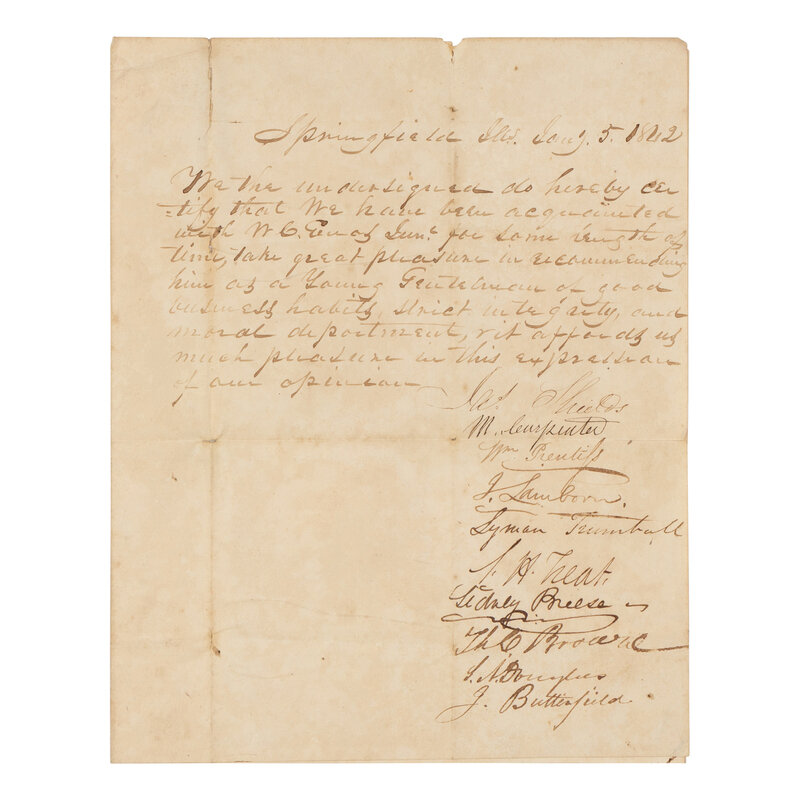 Springfield Ills. Jany. 5. 1842
We the undersigned do hereby cer
=tify that We have been acquainted
with W C. Junr. for some length of
time, take great pleasure in recommending
him as a Young Gentelman of good
business habits, strict integrity, and
moral deportment, & it affords us
much pleasure in this expression
of our opinion
Jas. Shields
M. Carpenter
Wm. Prentiss
J. Lamborn.
Lyman Trumball
S. H. Treat.
Sidney Breese
Th C. Browne
S. A. Douglas
J. Butterfield.